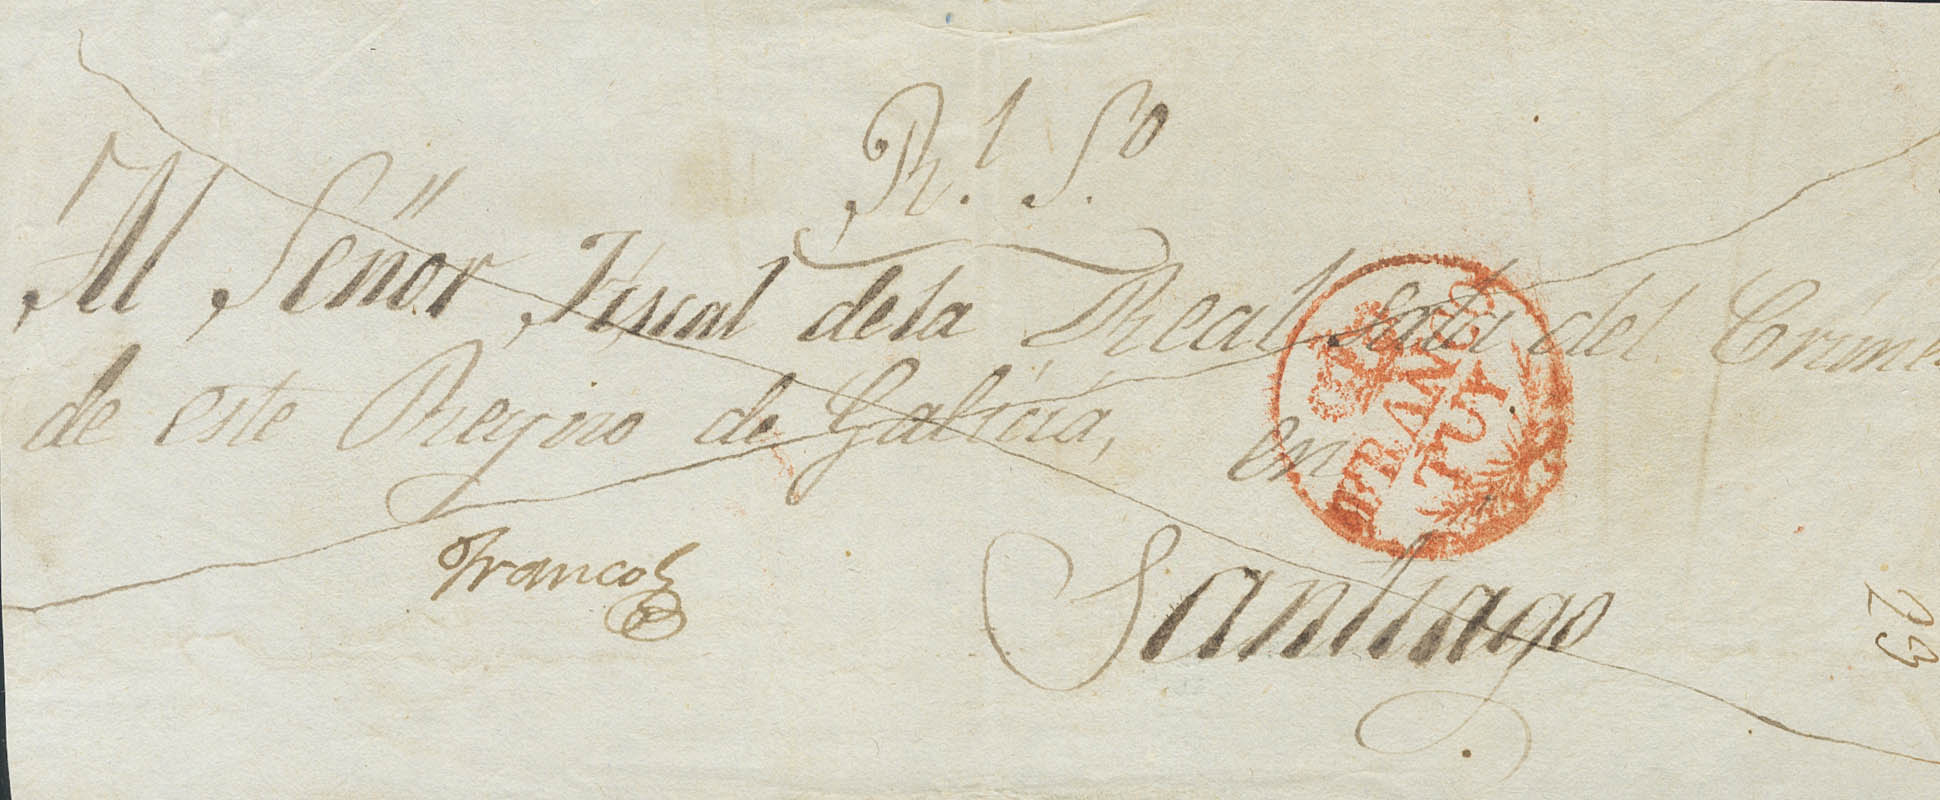 R.l S.o
Al Señor Fiscal de la Real sala del Crimen
de este Reyno de Galicia, en
Santiago
Franco
FRANCO
TUY
23